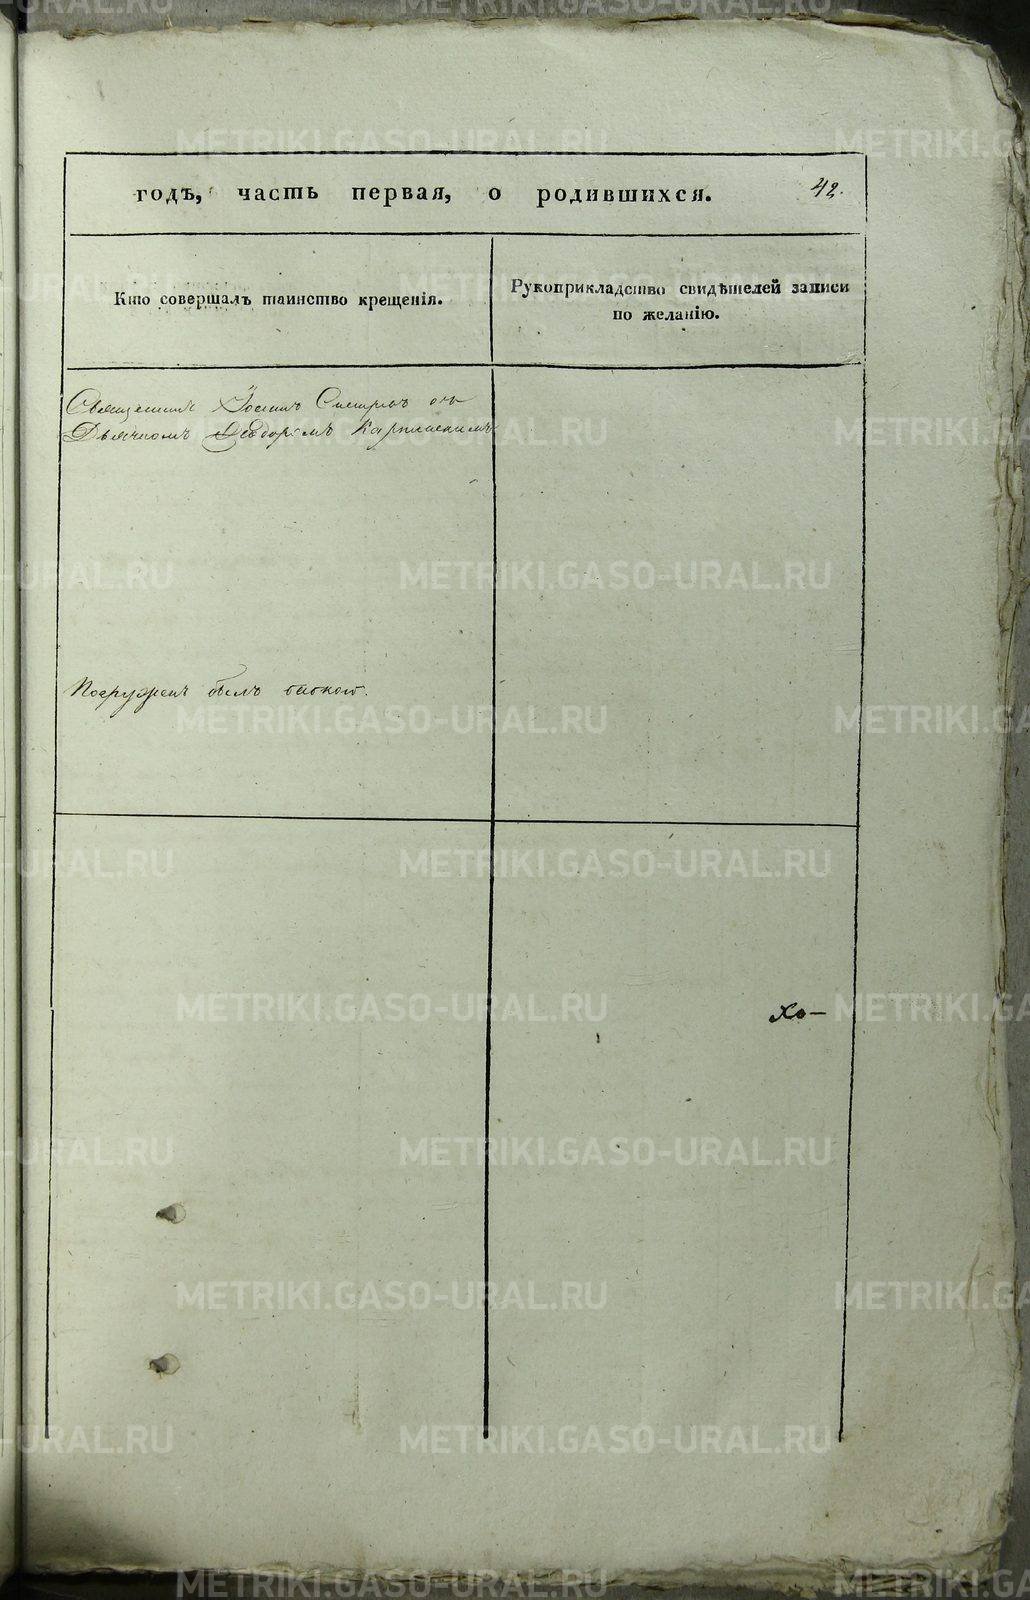 годъ, часть первая, о родившихся. 42.
Кто совершалъ таинство крещенія.
Рукоприкладство свидѣтелей записи
по желанію.
Священникъ Іоаннъ съ
Дьячкомъ Ѳеодоромъ Карпинскимъ
Погруженъ былъ
хо-
METRIKI.GASO-URAL.RU